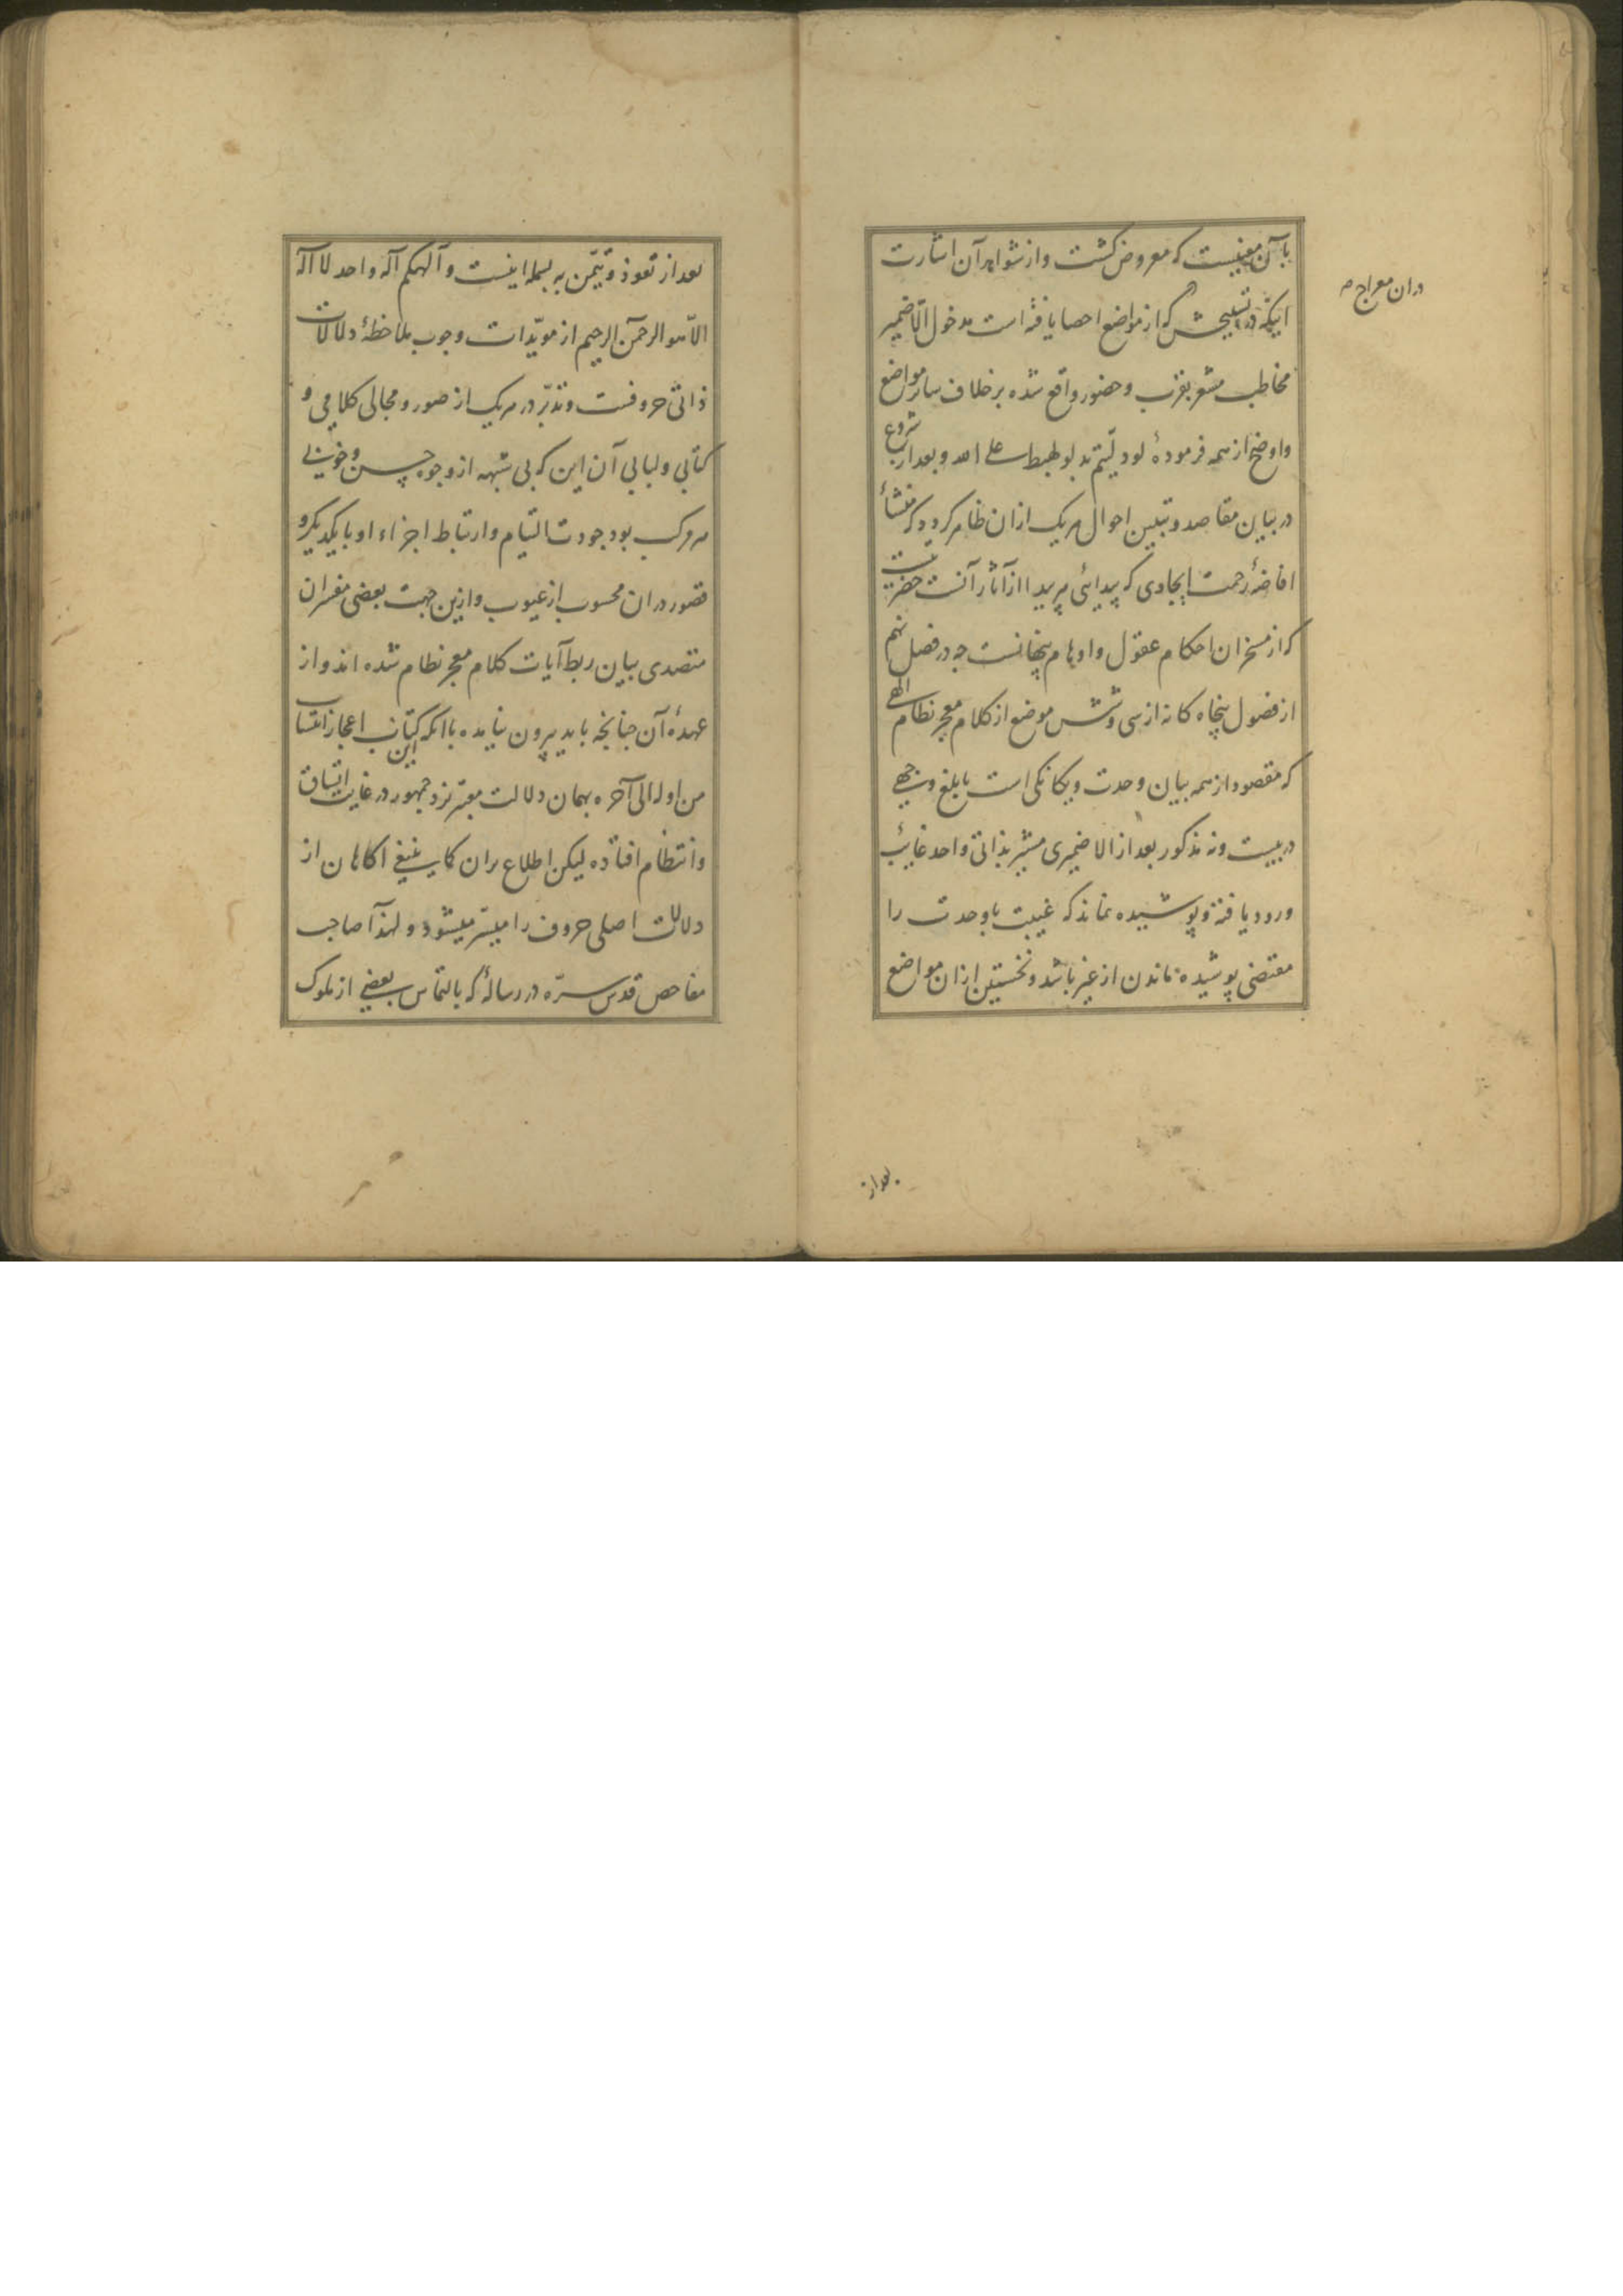 بآن معنیست که معروض کشت و از شواهد آن اشارت
آنکه در تسبیحش که از مواضع احصا یافته است مدخول الّا ضمیر
دران معراج
مخاطب مشعر بقرب و حضور واقع شده بر خلاف سایر مواضع
و اوضح از همه فرمودهٔ لو دلّیتم بدلو لهبط علی الله و بعد از شروع
در بیان مقاصد و تبیین احوال هر یک ازان ظاهر کردد که منشأ
افاضهٔ رحمت ایجادی که پیدائی هر پیدا از آثار آنست حضرت
که از مسخران احکام عقول و اوهام پنهانست چه در فصل نهم
از فصول پنجاه کانه از سی و شش موضع از کلام معجز نظام الهی
که مقصود از همه بیان وحدت و یکانکی است بابلغ وجهی
در بیست و نه مذکور بعد از الا ضمیری مشیر بذاتی واحد غایب
ورود یافته و پوشیده نماند که غیبت با وحدت را
مقتضی پوشیده ماندن از غیر باشد و نخستین ازان مواضع
بعد از
بعد از تعوذ و تیمّن به بسمله اینست و الهکم اله واحد لا اله
الّا هو الرحمن الرحیم از مویّدات وجوب ملاحظهٔ دلالات
ذاتی حروفست و تدبّر در هر یک از صور و مجالی کلامی و
کتابی و لبابی آن این که بی شبهه از وجوه حسن و خوبی
هر مرکب بود جودت التیام و ارتباط اجزاء او با یکدیکر و
قصور دران محسوب از عیوب و ازین جهت بعضی مفسران
متصدی بیان ربط آیات کلام معجز نظام شده اند و از
عهدهٔ آن چنانچه باید بیرون نیامده با آنکه این کتاب اعجاز انتساب
من اوله الی آخره بهمان دلالت معتبر نزد جمهور در غایت اتساق
و انتظام افتاده لیکن اطلاع بران کما ینبغی آکاهان از
دلالت اصلی حروف را میسّر میشود و لهذا صاحب
مفاحص قدس سرّه در رسالهٔ که بالتماس بعضی از ملوک